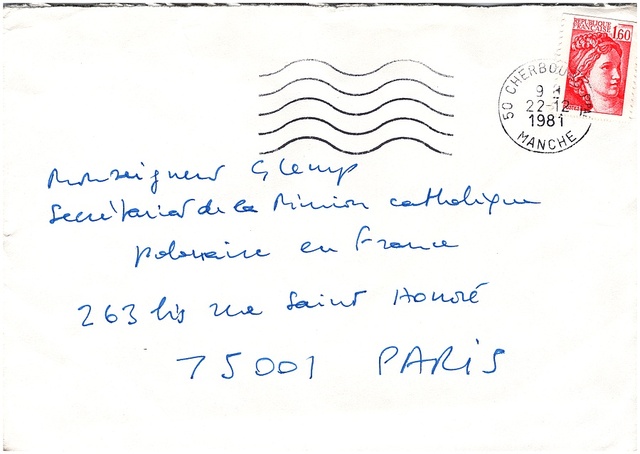 REPUBLIQUE
FRANCAISE 1,60
50 CHERBOU
9 H
22-12
1981
MANCHE
Monseigneur Glemp
Secrétariat de la Mission catholique
polonaise en France
263 bis rue Saint Honoré
75001 PARIS